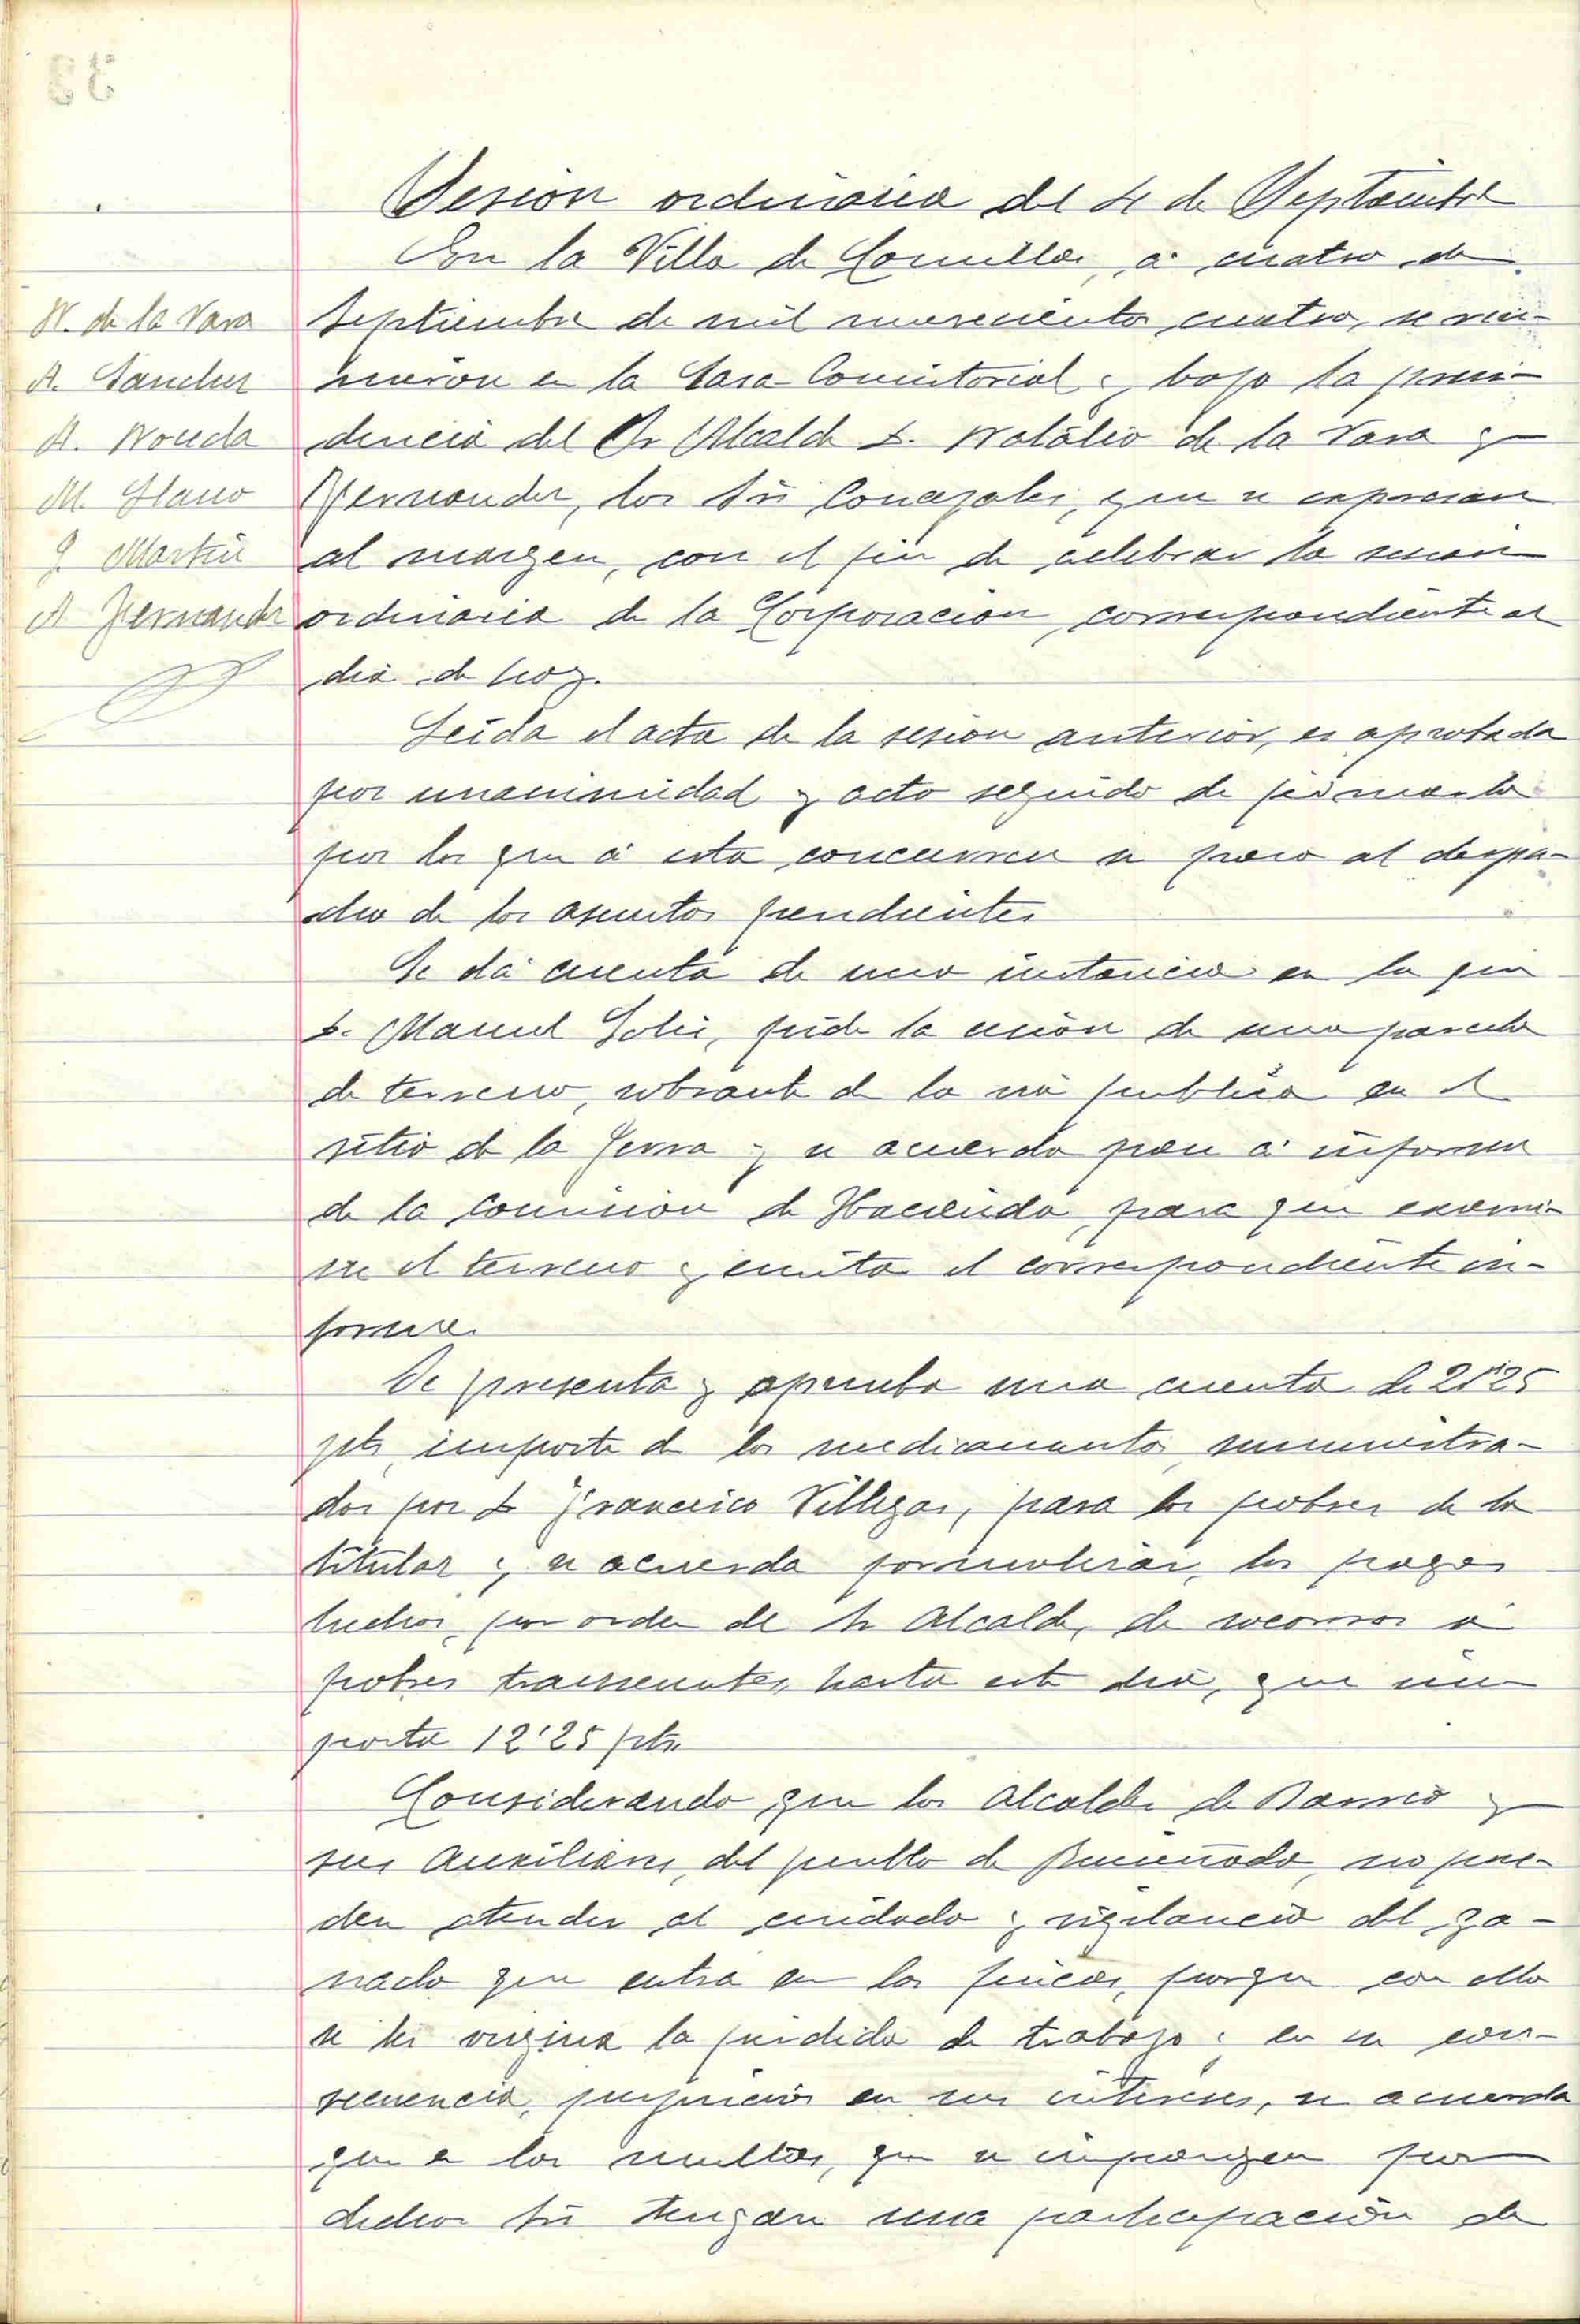 Sesion ordinaria del 4 de Septiembre
En la Villa de Comillas, a cuatro de
Septiembre de mil novecientos cuatro, se reu-
nieron en la Casa Consistorial, bajo la presi-
dencia del Sr Alcalde D. Natalio de la Vara y
Fernandez, los Srs Concejales, que se expresan
al margen, con el fin de celebrar la sesion
ordinaria de la Corporacion, correspondiente al
dia de hoy.
N. de la Vara
A. Sanchez
A.
M. Llano
J. Martin
A Fernandez
Leida el acta de la sesion anterior, es aprobada
por unanimidad y acto seguido de firmarla
por los que á esta concurren se paso al despa-
cho de los asuntos pendientes
Se dá cuenta de una instancia en la que
D. Manuel Solis, pide la cesion de una parcela
de terreno, sobrante de la via publica en el
sitio de la y se acuerda pase á informe
de la Comision de Hacienda, para que exami-
ne el terreno y emita el correspondiente in-
forme.
Se presenta y aprueba una cuenta de 21'25
pts, importe de los medicamentos suministra-
dos por D Francisco Villegas, para los pobres de la
titular y se acuerda los pagos
hechos, por orden del Sr Alcalde, de socorros á
pobres transeuntes, hasta este dia, que im-
porta 12'25 pts.
Considerando que los Alcaldes de Barrio y
sus Auxiliares, del pueblo de Ruiseñada, no pue-
den atender al cuidado y vigilancia del ga-
nado que entra en las fincas, porque con ello
se les origina la perdida de trabajo y en su con-
secuencia, perjuicios en sus intereses, se acuerda
que en las multas, que se impongan por
dichos Srs tengan una participación de